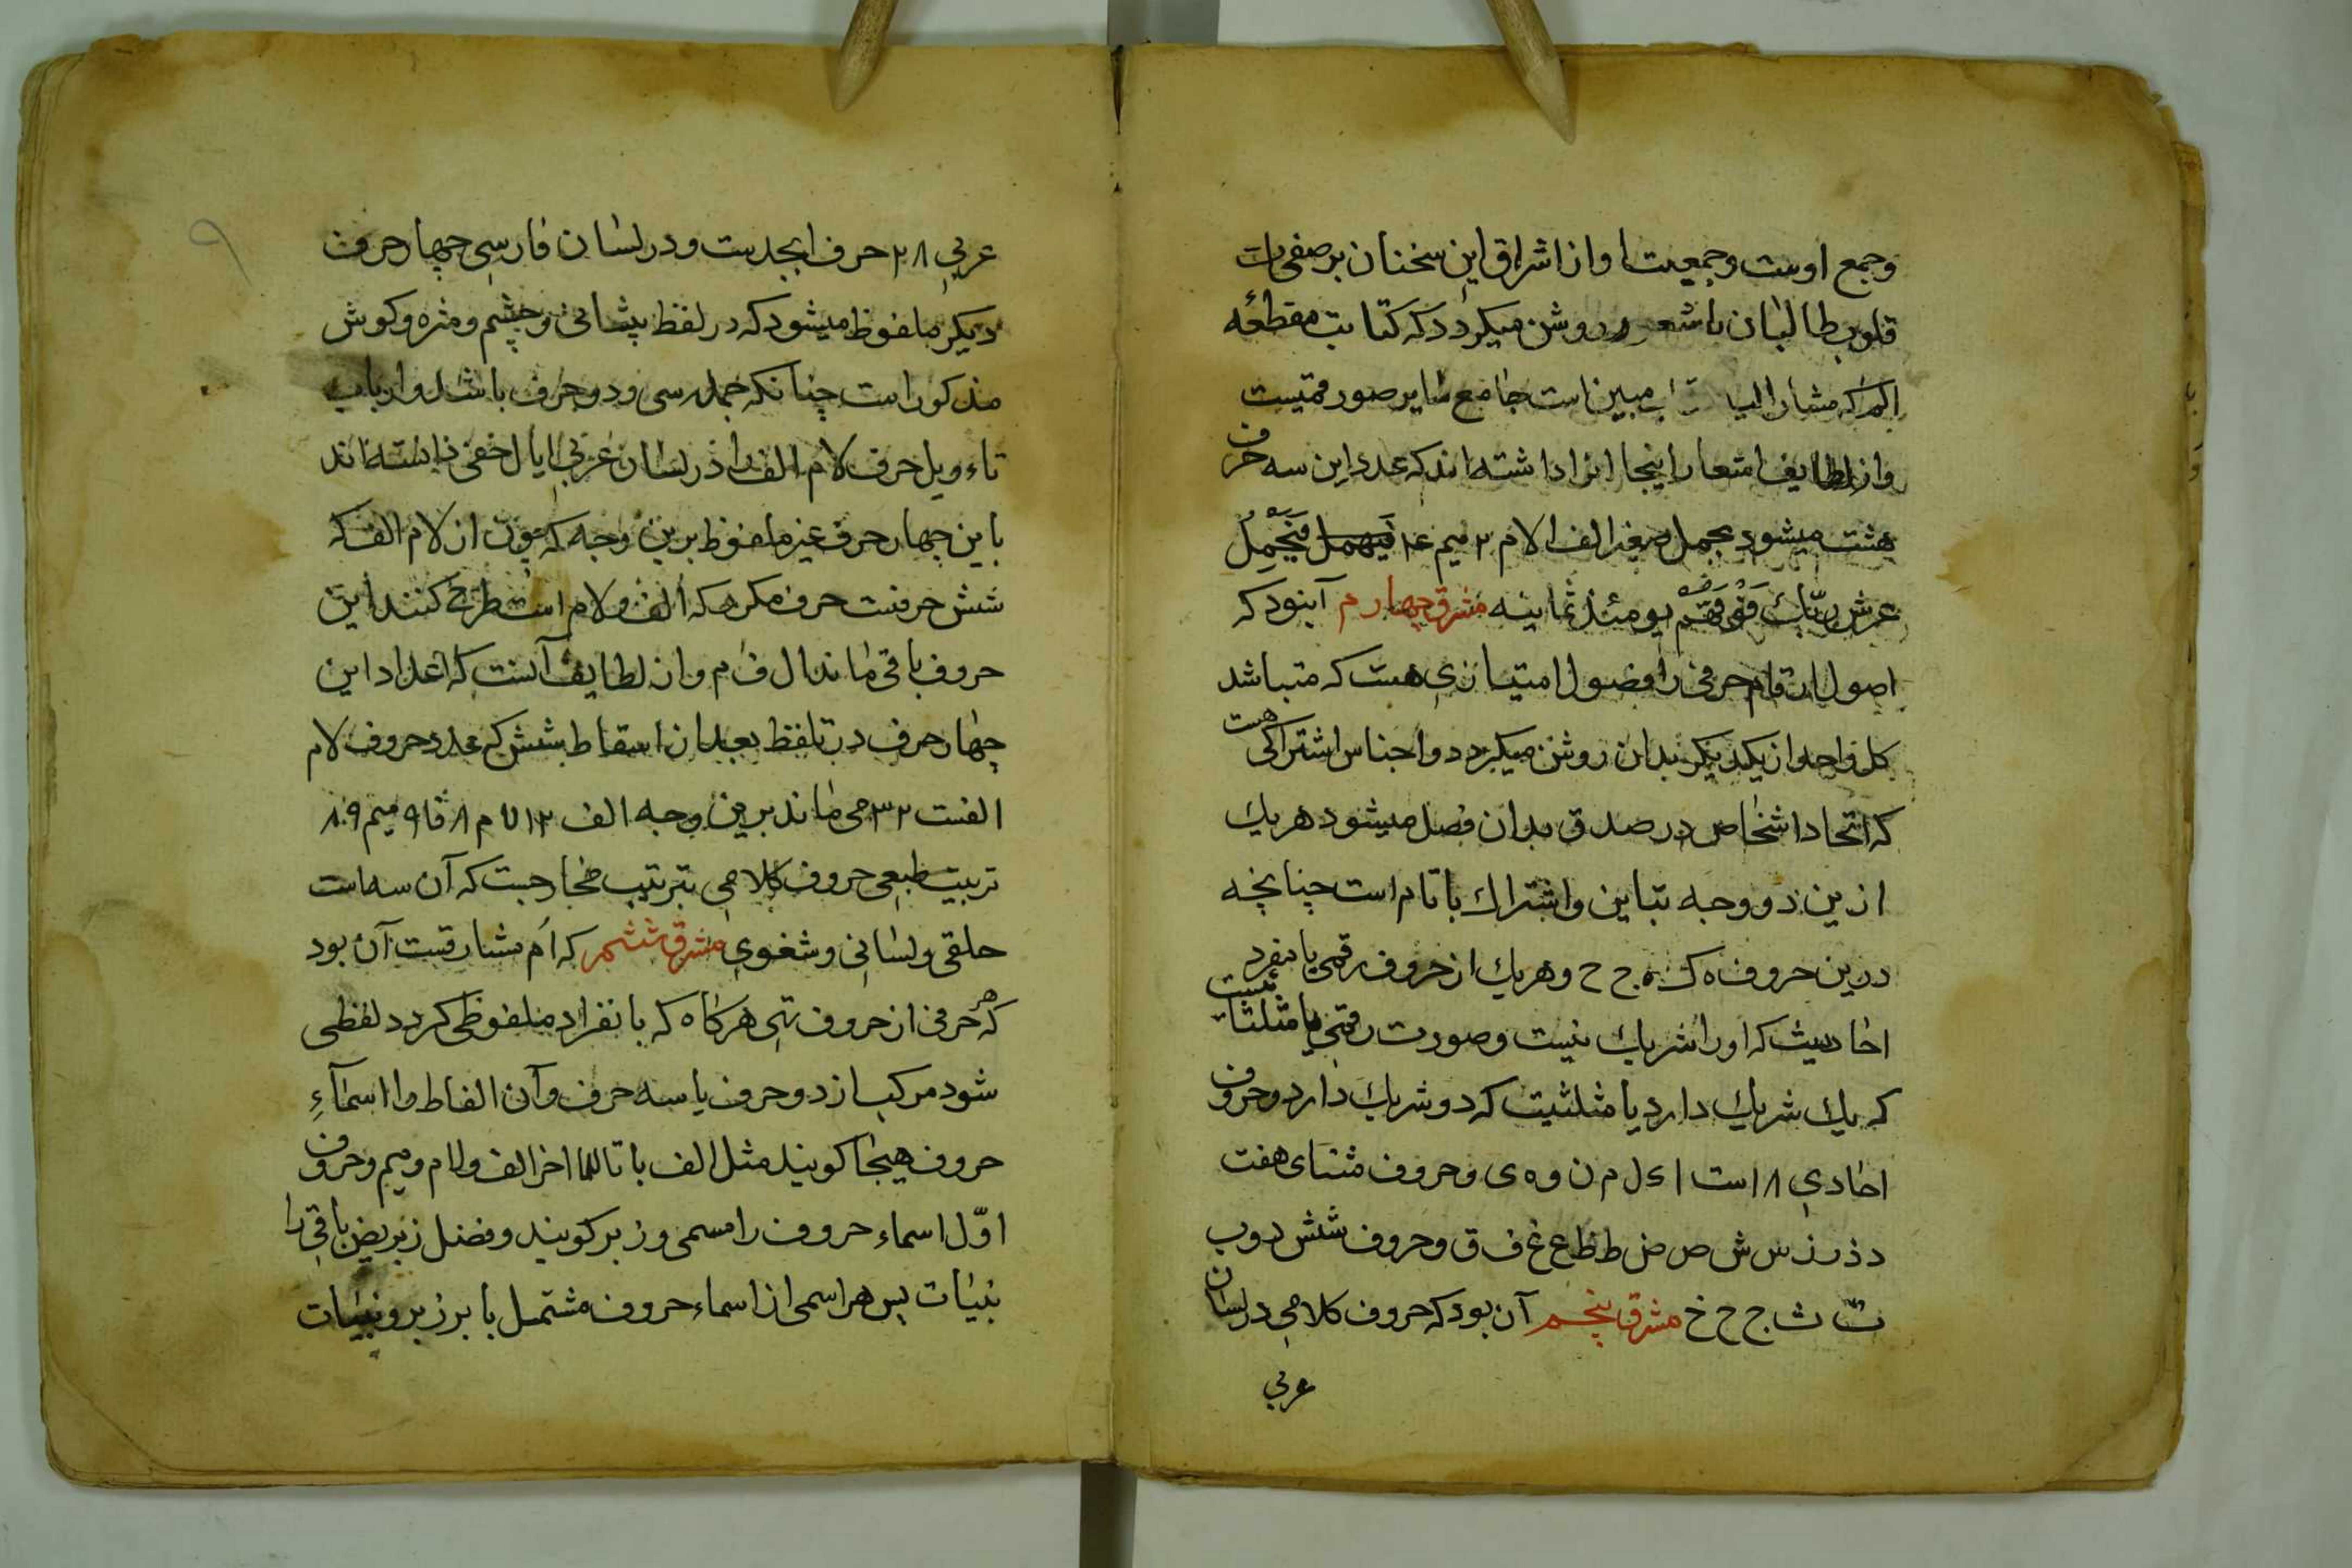 وجمع اوست وجمعیت ا واز اشراق این سخنان بر صفحات
قلوب طالبان روشن میکردد که کتابت مقطعه
الم که مشار الیه مبین است جامع سایر صور
واز لطایف اینجا اند که عدد این سه حرف
هشت میشود بجمل صغیر الف ۱ لام ۳ میم ۴ ویحمل
عرش ربّك فوقهم یومئذ ثمانیه مشرق چهارم آنبود که
اصول ارقام حرفی را فصول امتیازی هست که متباشد
کل واحد از یکدیکر بدان روشن میکردد واجناس اشتراکی هست
که اتحاد اشخاص در صدق بدان فصل میشود هر یك
ازین دو وجه تباین واشتراك با تام است چنانچه
درین حروف ه ک ج ح وهریك از حروف رقمی یا منفرد
احادیث که اورا شریك نیست وصورت رقمی یا
که یك شریك دارد یا مثلثیت که دو شریك دارد وحروف
احادی ۸ است ا ک ل م ن و ه ی وحروف مثنای هفت
د ذ ر ز س ش ص ض ط ظ ع غ ف ق وحروف شش دو ب
ت ث ج ح خ مشرق پنجم آن بود که حروف کلامی در لسان
عربي
۹
عربي ۲۸ حرف ابجدست ودر لسان فارسی چهار حرف
دیکر ملفوظ میشود که در لفظ پیشانی وچشم ومژه وکوش
مذکور است چنانکه جمله سی ودو حرف باشد وارباب
تاءویل حرف لام الف را در لسان عربی
باین چهار حرف غیر ملفوظ برین وجه که چون از لام الف که
شش حرفست حرف مکرر که الف ولام است طرح کنند این
حروف باقی ماند ا ل ف م واز لطایف آنست که اعداد این
چهار حرف در تلفظ بعد از اسقاط شش که عدد حروف لام
الفست ۳۲ می ماند برین وجه الف ۱۲ فا ۹ میم
تربیت طبعی حروف کلامی بترتیب مخارجست که آن سه است
حلقی ولسانی وشغوی مشرق ششم که اُم مشارقست آن بود
که هر حرفی از حروف تهی هرکاه که بانفراد ملفوظی کردد لفظی
شود مرکب از دو حرف یا سه حرف وآن الفاظ را اسمآءِ
حروف هیجا کویند مثل الف با تا الی اخر الف ولام ومیم وحروف
اوّل اسماء حروف را مسمی وزبر کویند باقی را
بنیات پس هر اسمی از اسماء حروف مشتمل با بر زبر وبنیات